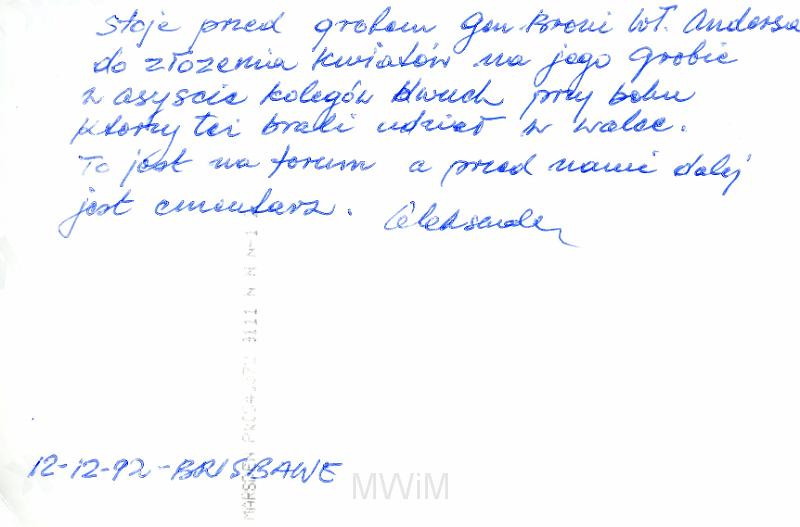 Stoje przed grobem Gen Broni Wł. Andersa
do złozenia kwiatów na jego grobie
w asyscie kolegów dwuch przy boku
ktorzy tei brali udział w walce.
To jest na forum a przed nami dalej
jest cmentarz. Aleksander
12-12-92 - BRISBANE
MWiM